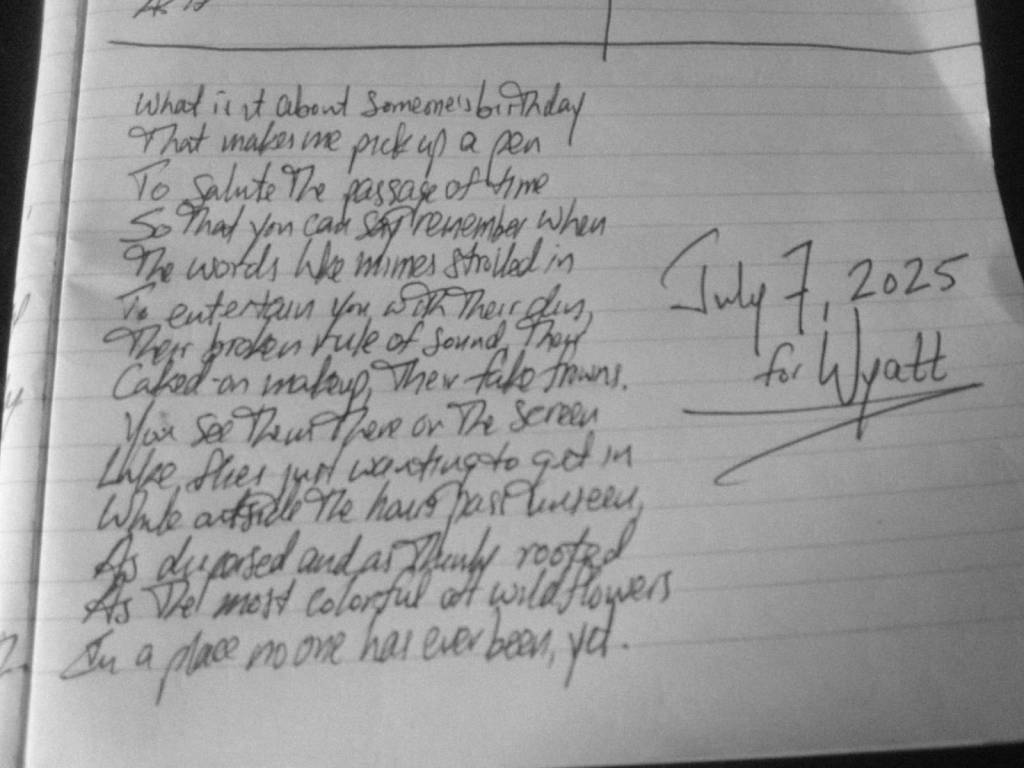 As
What is it about someone's birthday
That makes me pick up a pen
To salute the passage of time
So that you can say remember when
The words like mimes strolled in
To entertain you with their din,
Their broken rule of sound, their
Caked-on makeup, their fake frowns.
You see them there on the screen
Like flies just wanting to get in
While outside the hours past unseen,
As dispersed and as thinly rooted
As the most colorful of wildflowers
In a place no one has ever been, yet.
July 7, 2025
for Wyatt